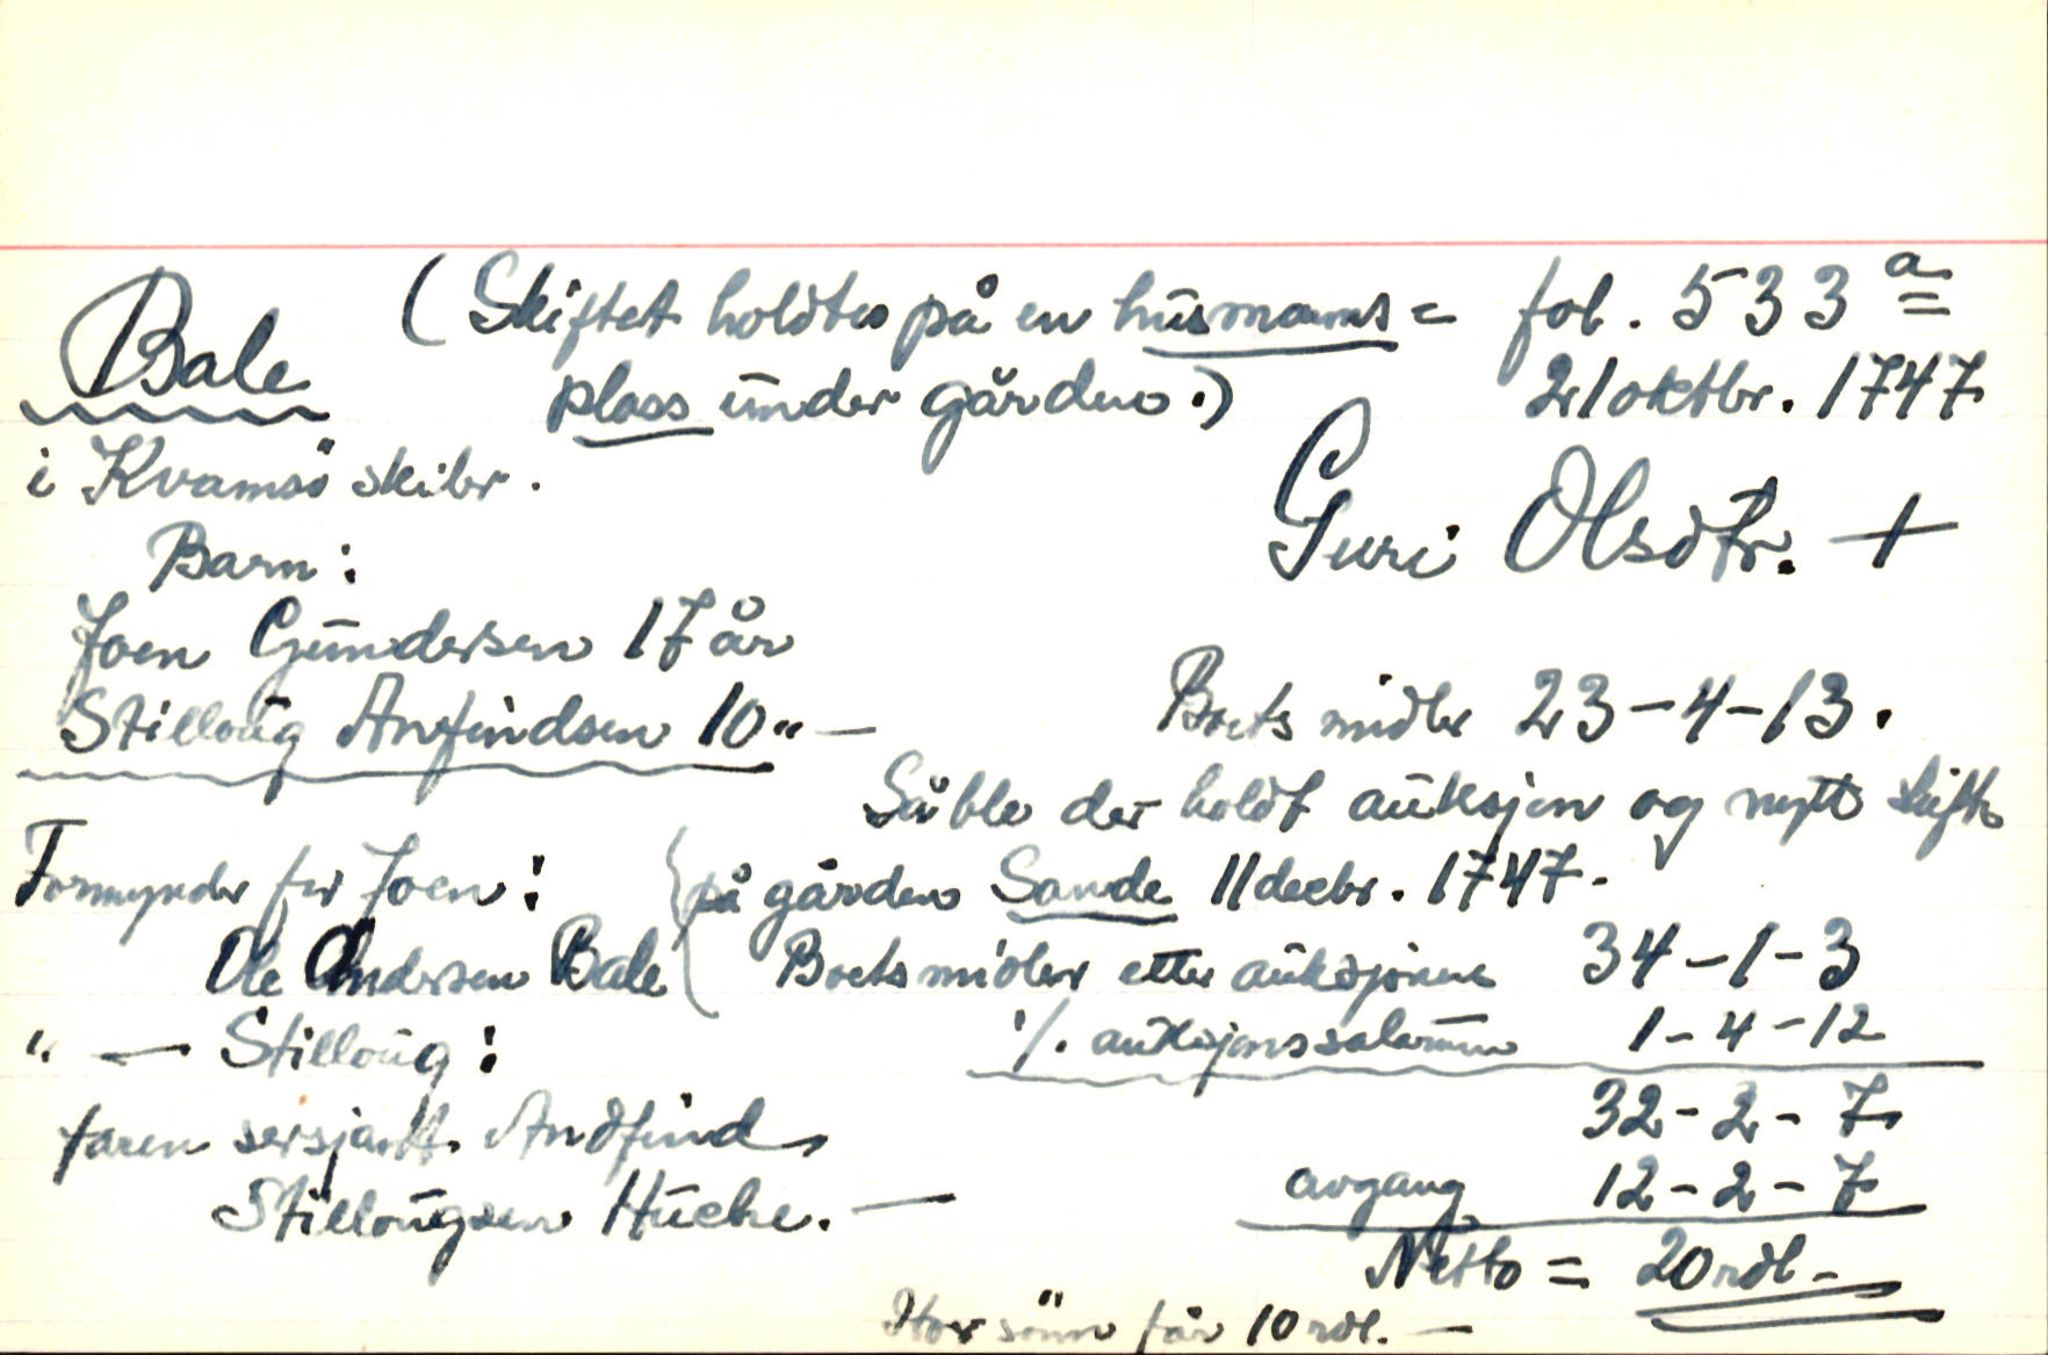 Bale (Skiftet holdtes på en husmanns= fol. 533 a
plass under gården.) 21 oktbr. 1747
i Kvamsö skibr.
Guri Olsdtr. +
Barn:
Joen Gundersen 17 år
Stilloug Anfindsen 10 " —
Boets midler 23-4-13.
Så ble der holdt auksjon og nytt skifte
på gården Sande 11 decbr. 1747.
Formynder for Joen:
Ole Andersen Bale
Boets midler etter auksjonen 34-1-3
./. auksjonssalarium 1-4-12
" — Stilloug:
32-2-7
faren sersjant Andfind
Stillougsen Hueke. —
avgang 12-2-7
Netto = 20 rdl.
Hver sönn får 10 rdl. —